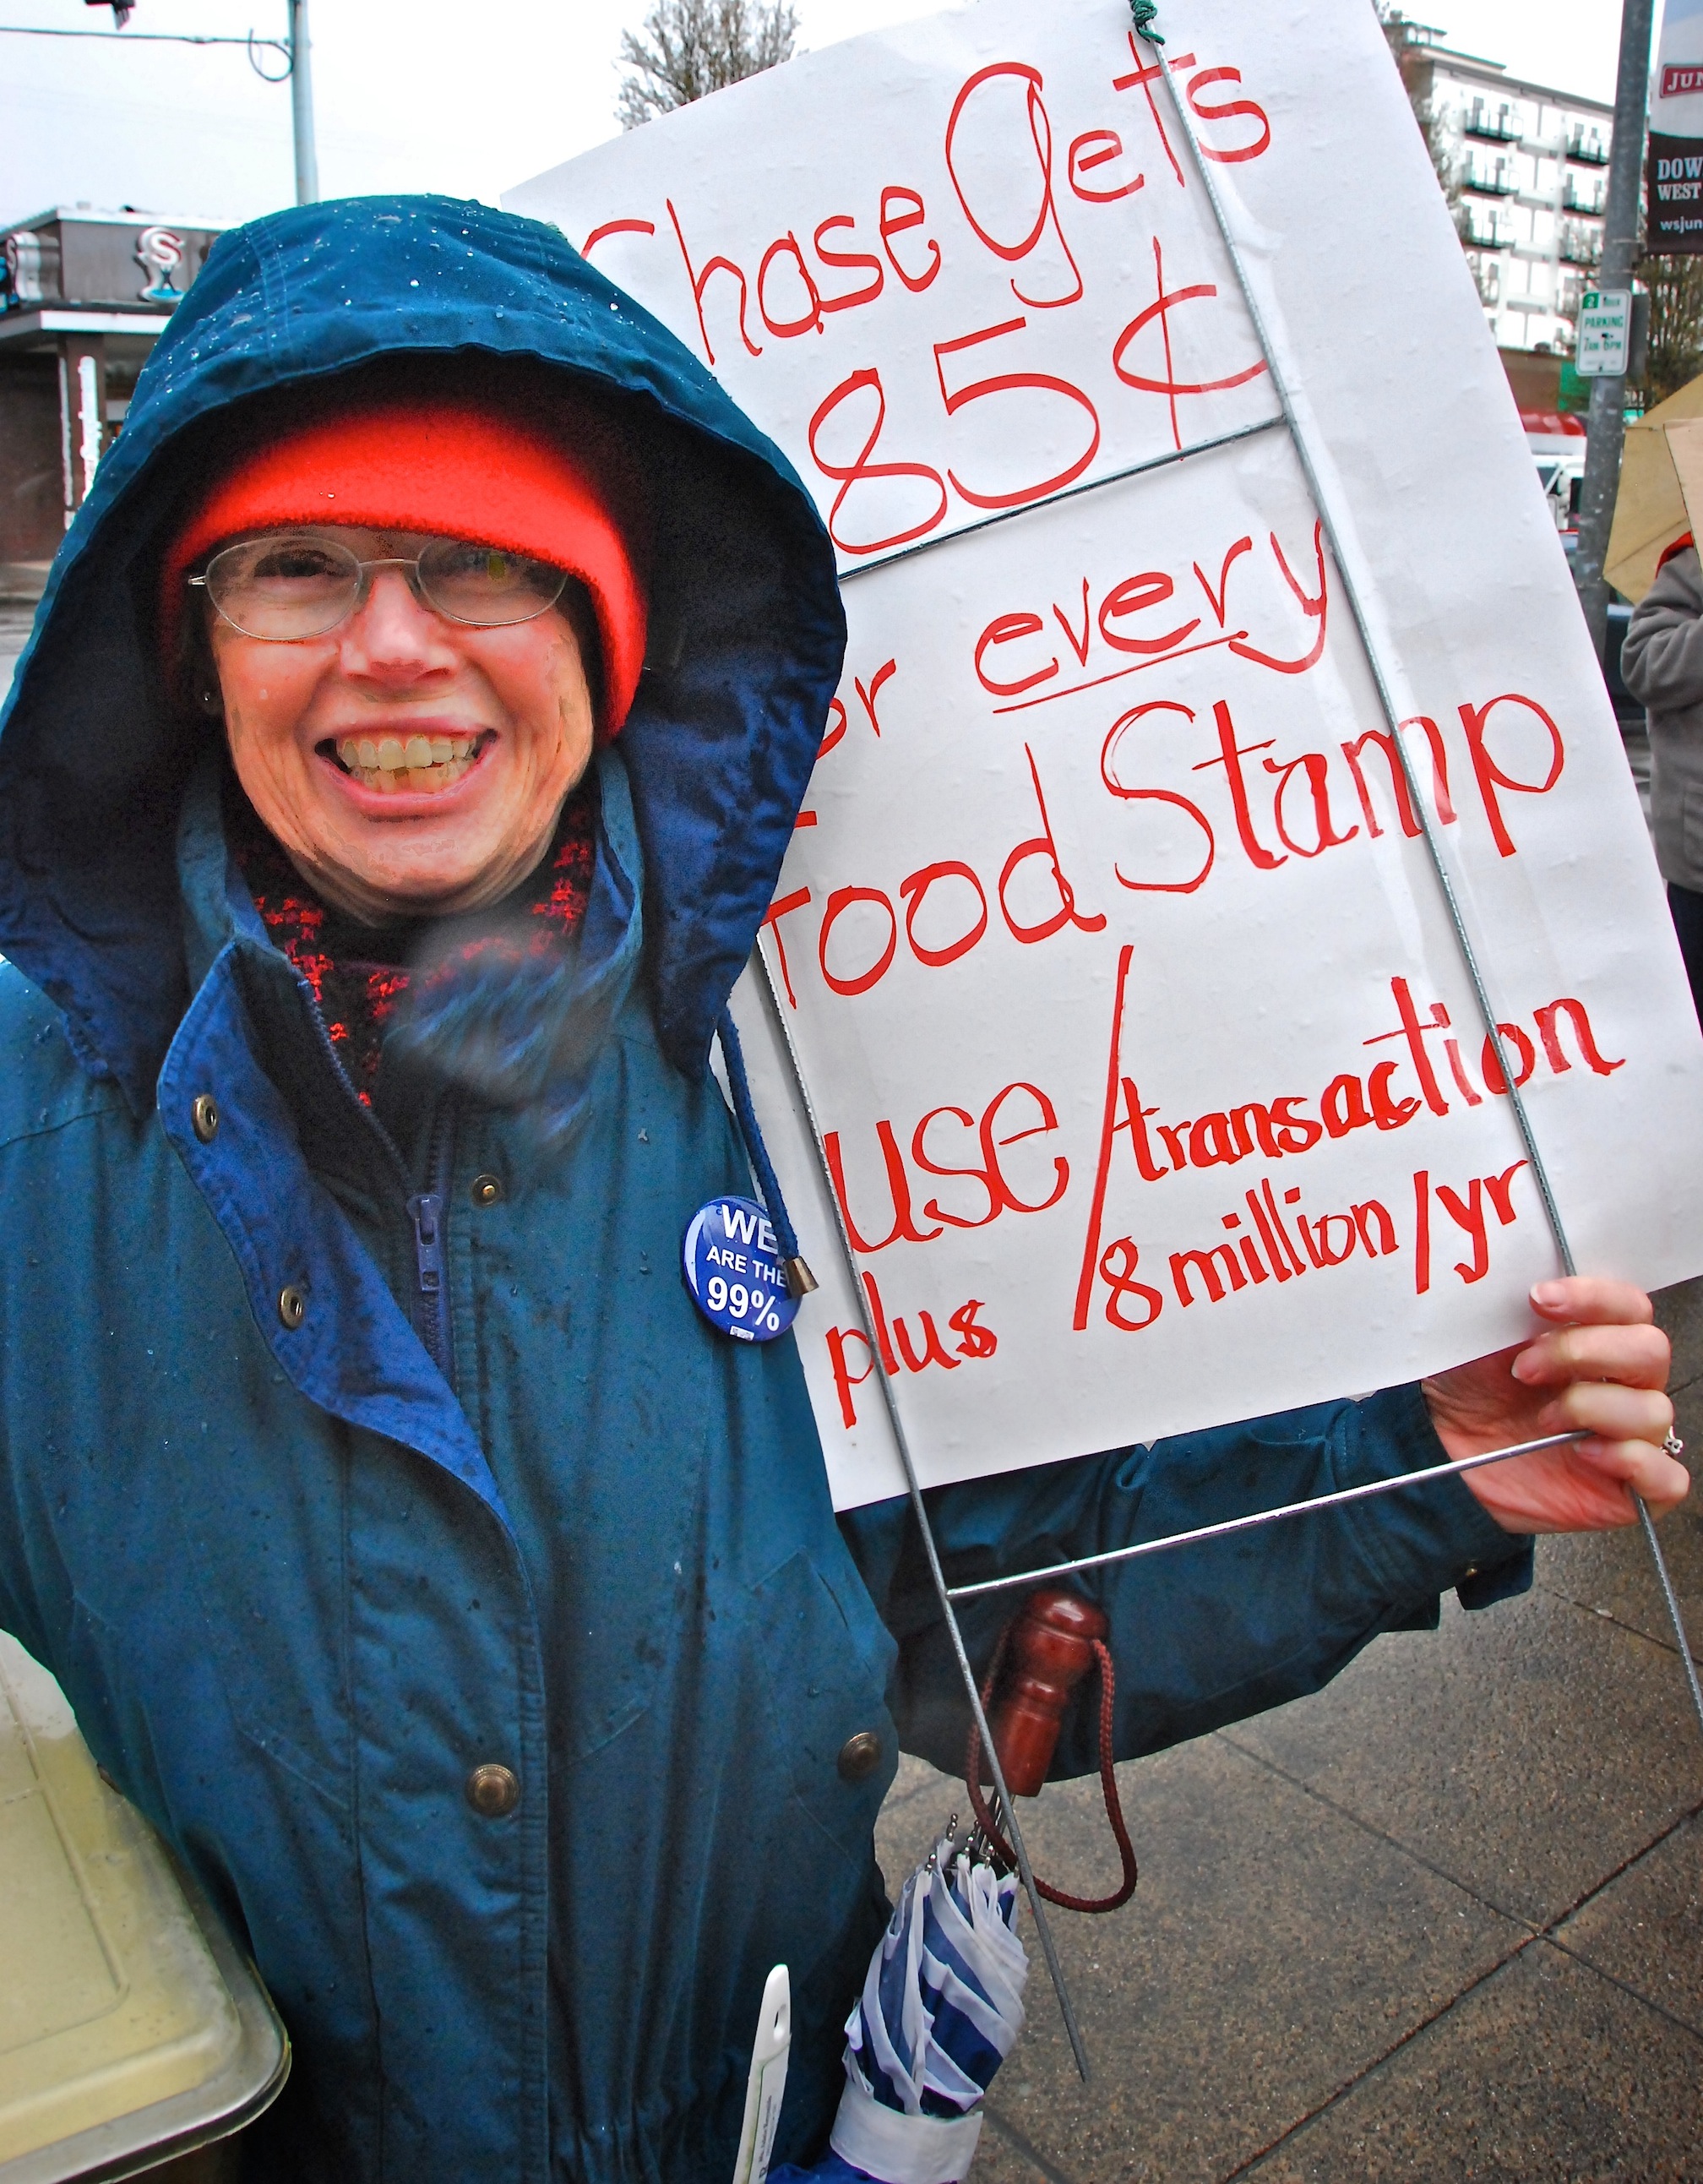 Chase Gets
85¢
for every
Food Stamp
use/transaction
plus /8 million/yr
WE
ARE THE
99%
S
JUN
DOW
WEST
wsjun
2 HOUR
PARKING
7AM-6PM